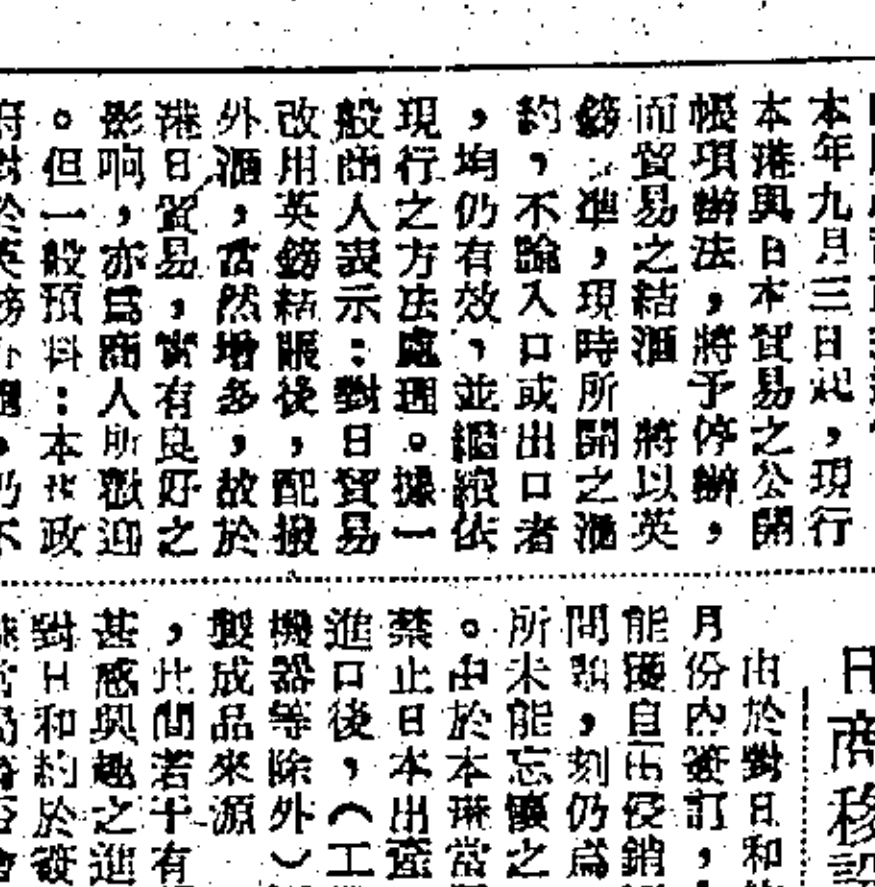 本年九月三日起，現行
本港與日本貿易之公開
帳項辦法，將予停辦，
而貿易之結滙 將以英
鎊 準，現時所開之滙
約，不論入口或出口者
，均仍有效，並繼續依
現行之方法處理。據一
般商人表示：對日貿易
改用英鎊結賬後，配撥
外滙，當然增多，故於
港日貿易，當有良好之
影响，亦爲商人所歡迎
。但一般預料：本 政
日商移
由於對日和
月份內簽訂，
能獲自由侵銷
問題，刻仍爲
所未能忘懷之
。由於本港當
禁止日本出產
進口後，（工
機器等除外）
製成品來源
，此間若干有
甚感興趣之進
對日和約於簽